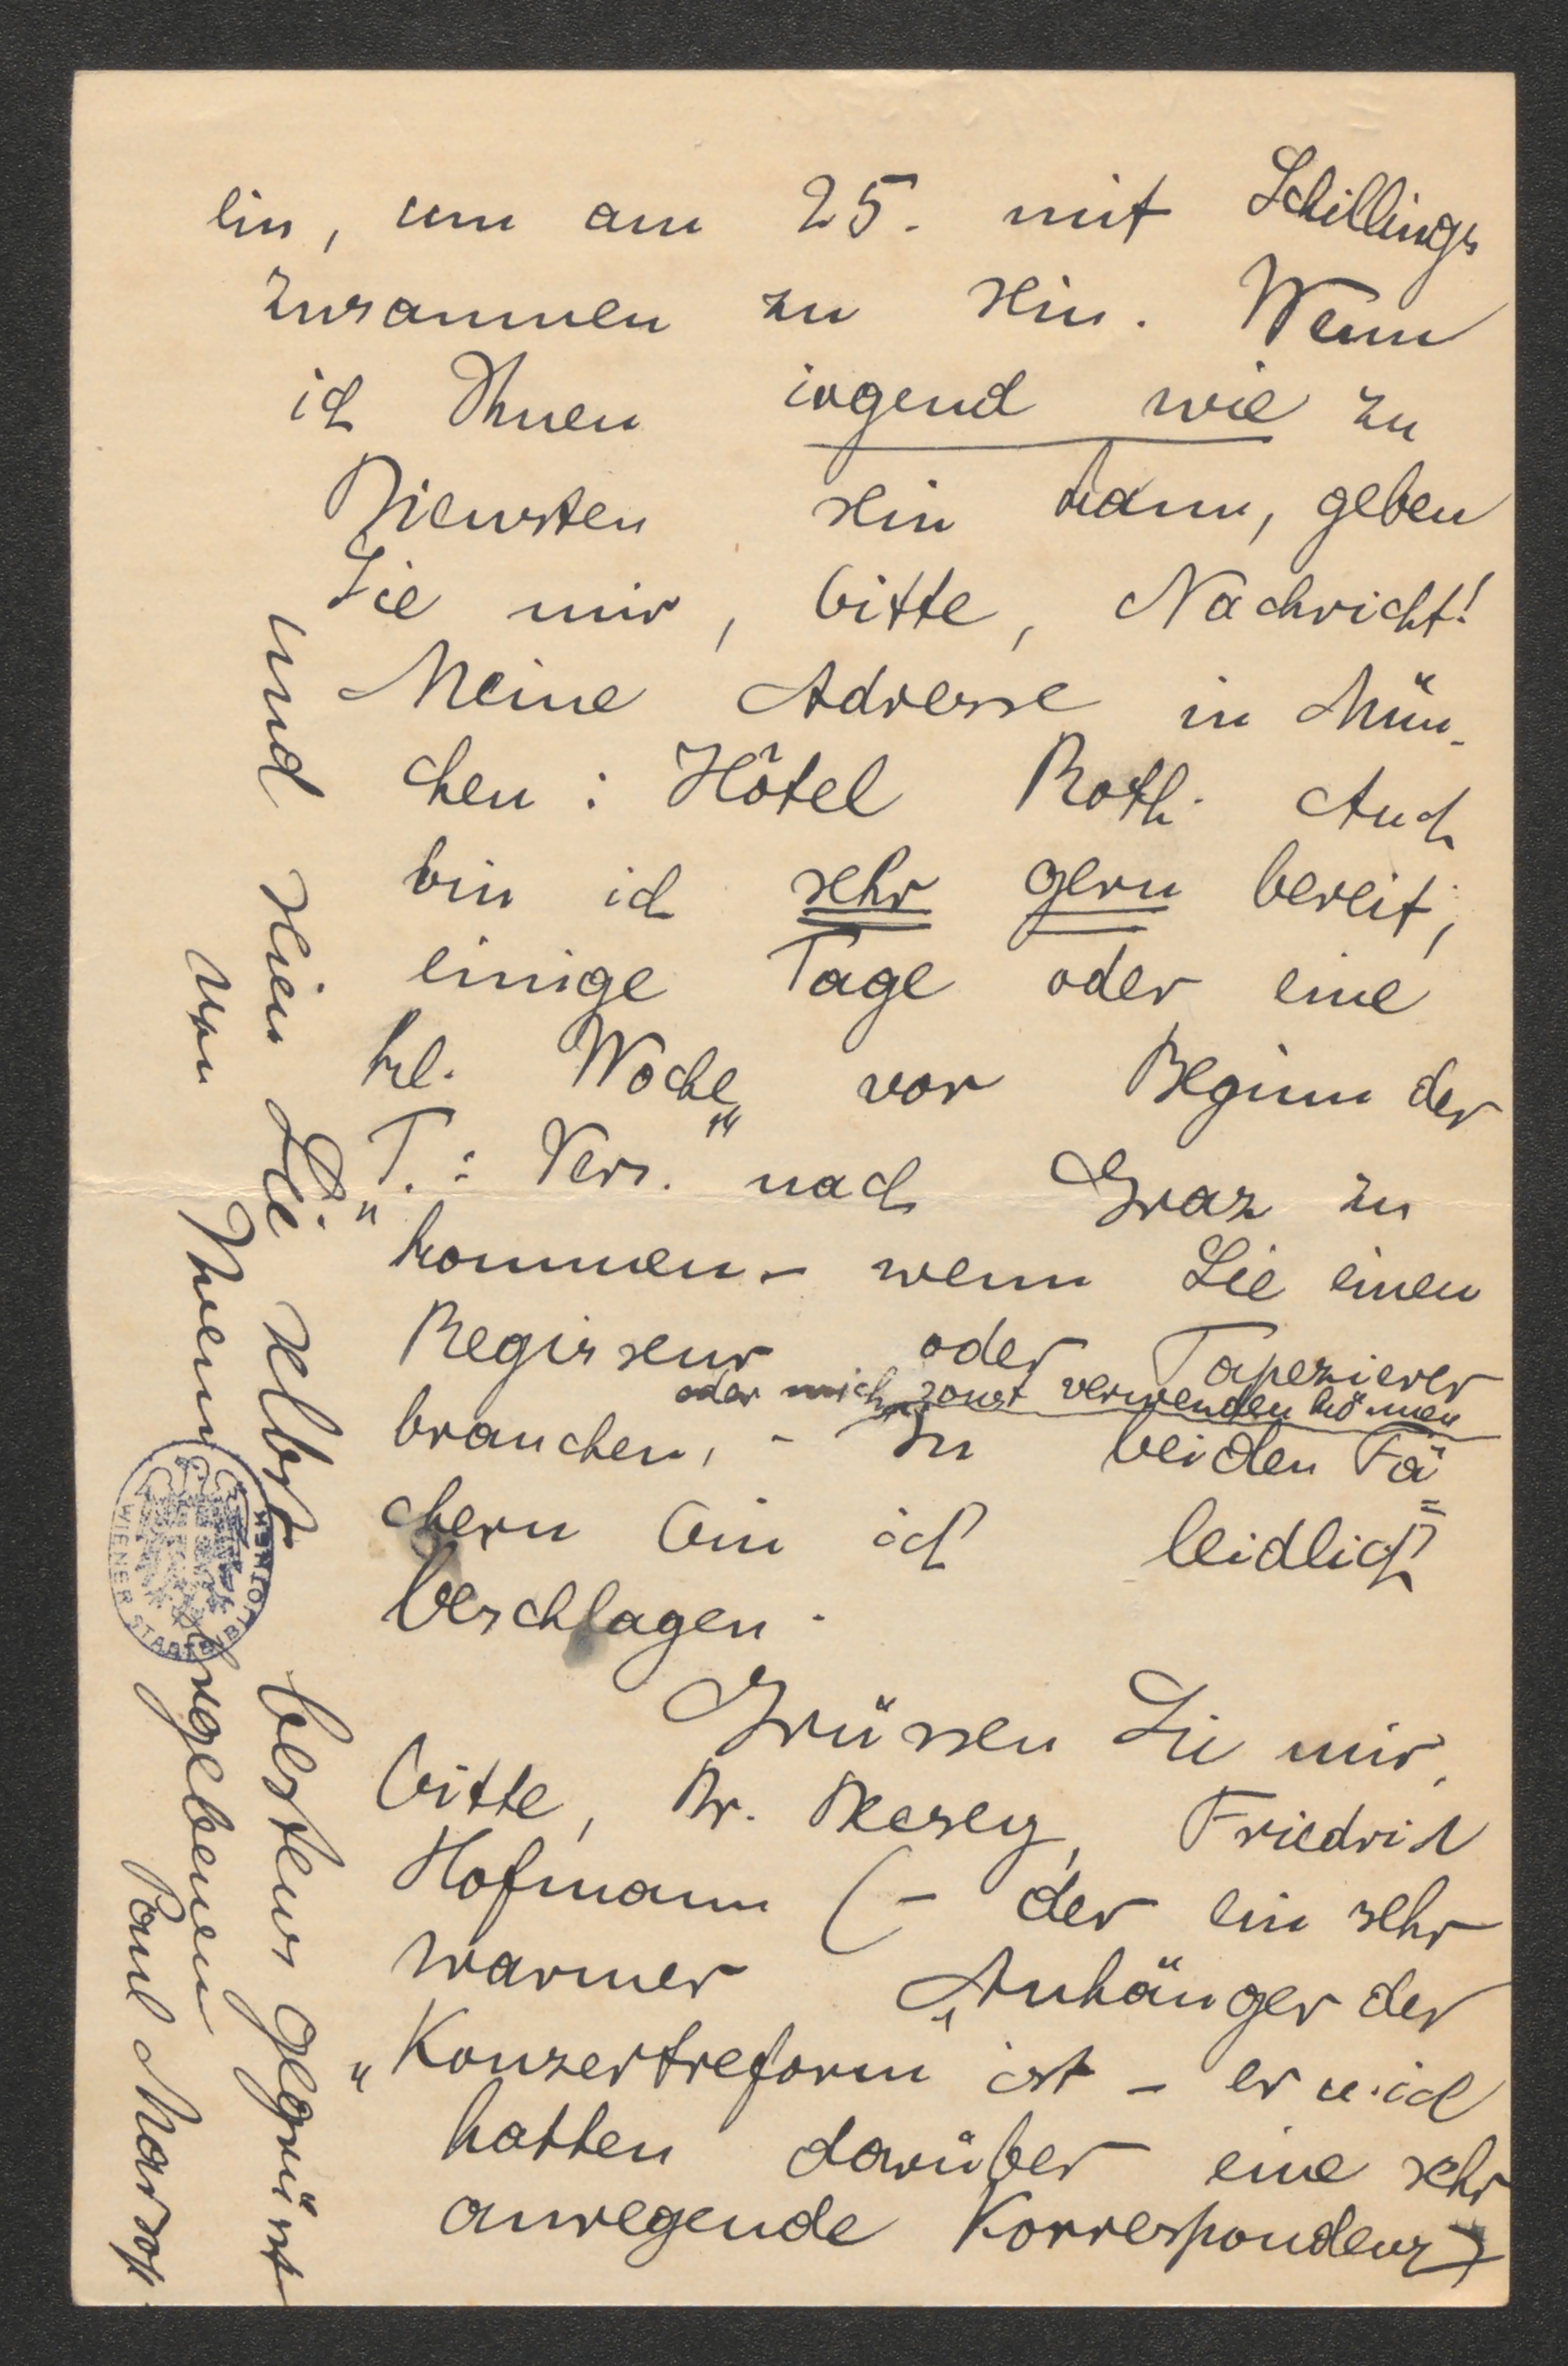 lin, um am 25. mit Schillings
zusammen zu sein. Wenn
ich Ihnen irgend wie zu
Diensten sein kann, geben
Sie mir, bitte, Nachricht!
Meine Adresse in Mün-
chen: Hôtel Roth. Auch
bin ich sehr gern bereit,
einige Tage oder eine
kl. Woche vor Beginn der
"T.: Vers." nach Graz zu
kommen – wenn Sie einen
Regisseur oder Tapezierer
oder mich sonst verwenden können
brauchen, – In beiden Fä=
chern bin ich leidlich
beschlagen.
Grüssen Sie mir,
bitte, Dr. Decsey, Friedrich
Hofmann (– der ein sehr
warmer Anhänger der
"Konzertreform" ist – er u. ich
hatten darüber eine sehr
anregende Korrespondenz)
und seien Sie selbst bestens gegrüsst
von Ihrem ergebenen
Paul Marsop.
WIENER STADTBIBLIOTHEK